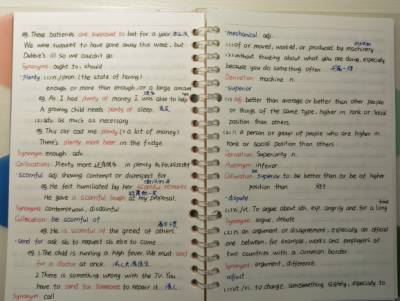 eg. These batteries are supposed to last for a year.
We were supposed to have gone away this week, but
Debbie's ill so we couldn't go.
Synonyms: ought to, should
·plenty (1) n./pron. (the state of having)
enough, or more than enough, or a large amount
eg. As I had plenty of money I was able to help
A growing child needs plenty of sleep.
(2) adv. as much as necessary
eg. This car cost me plenty (= a lot of money).
There's plenty more beer in the fridge.
Synonym: enough adv.
Collocations: Plenty more in plenty
·scornful adj. showing contempt or disrespect for
eg. He felt humiliated by her scornful remarks
He gave a scornful laugh at my proposal.
Synonyms: contemptuous, disdainful
Collocation: be scornful of
eg. He is scornful of the greed of others.
·send for ask sb to request sb else to come
eg. 1. The child is running a high fever. We must send
for a doctor at once.
2. There is something wrong with the TV. You
have to send for someone to repair it.
Synonym: call
·mechanical adj.
(1) of or moved, worked, or produced by machinery
(2) without thinking about what you are doing, especially
because you do something often
Derivation: machine n.
·superior
(1) adj. better than average or better than other people
or things of the same type, higher in rank or social
position than others.
(2) n. a person or group of people who are higher in
rank or social position than others.
Derivation: Superiority n.
Antonym: inferior
Collocation: superior to: be better than or be of higher
position than
·dispute
(1) vi./vt. To argue about sth. esp. angrily and for a long
time
Synonyms: argue, debate
(2) n. an argument or disagreement, especially an official
one between, for example, workers and employers or
two countries with a common border
Synonyms: argument, difference.
·adjust
(1) vt./vi. to change something slightly, especially to